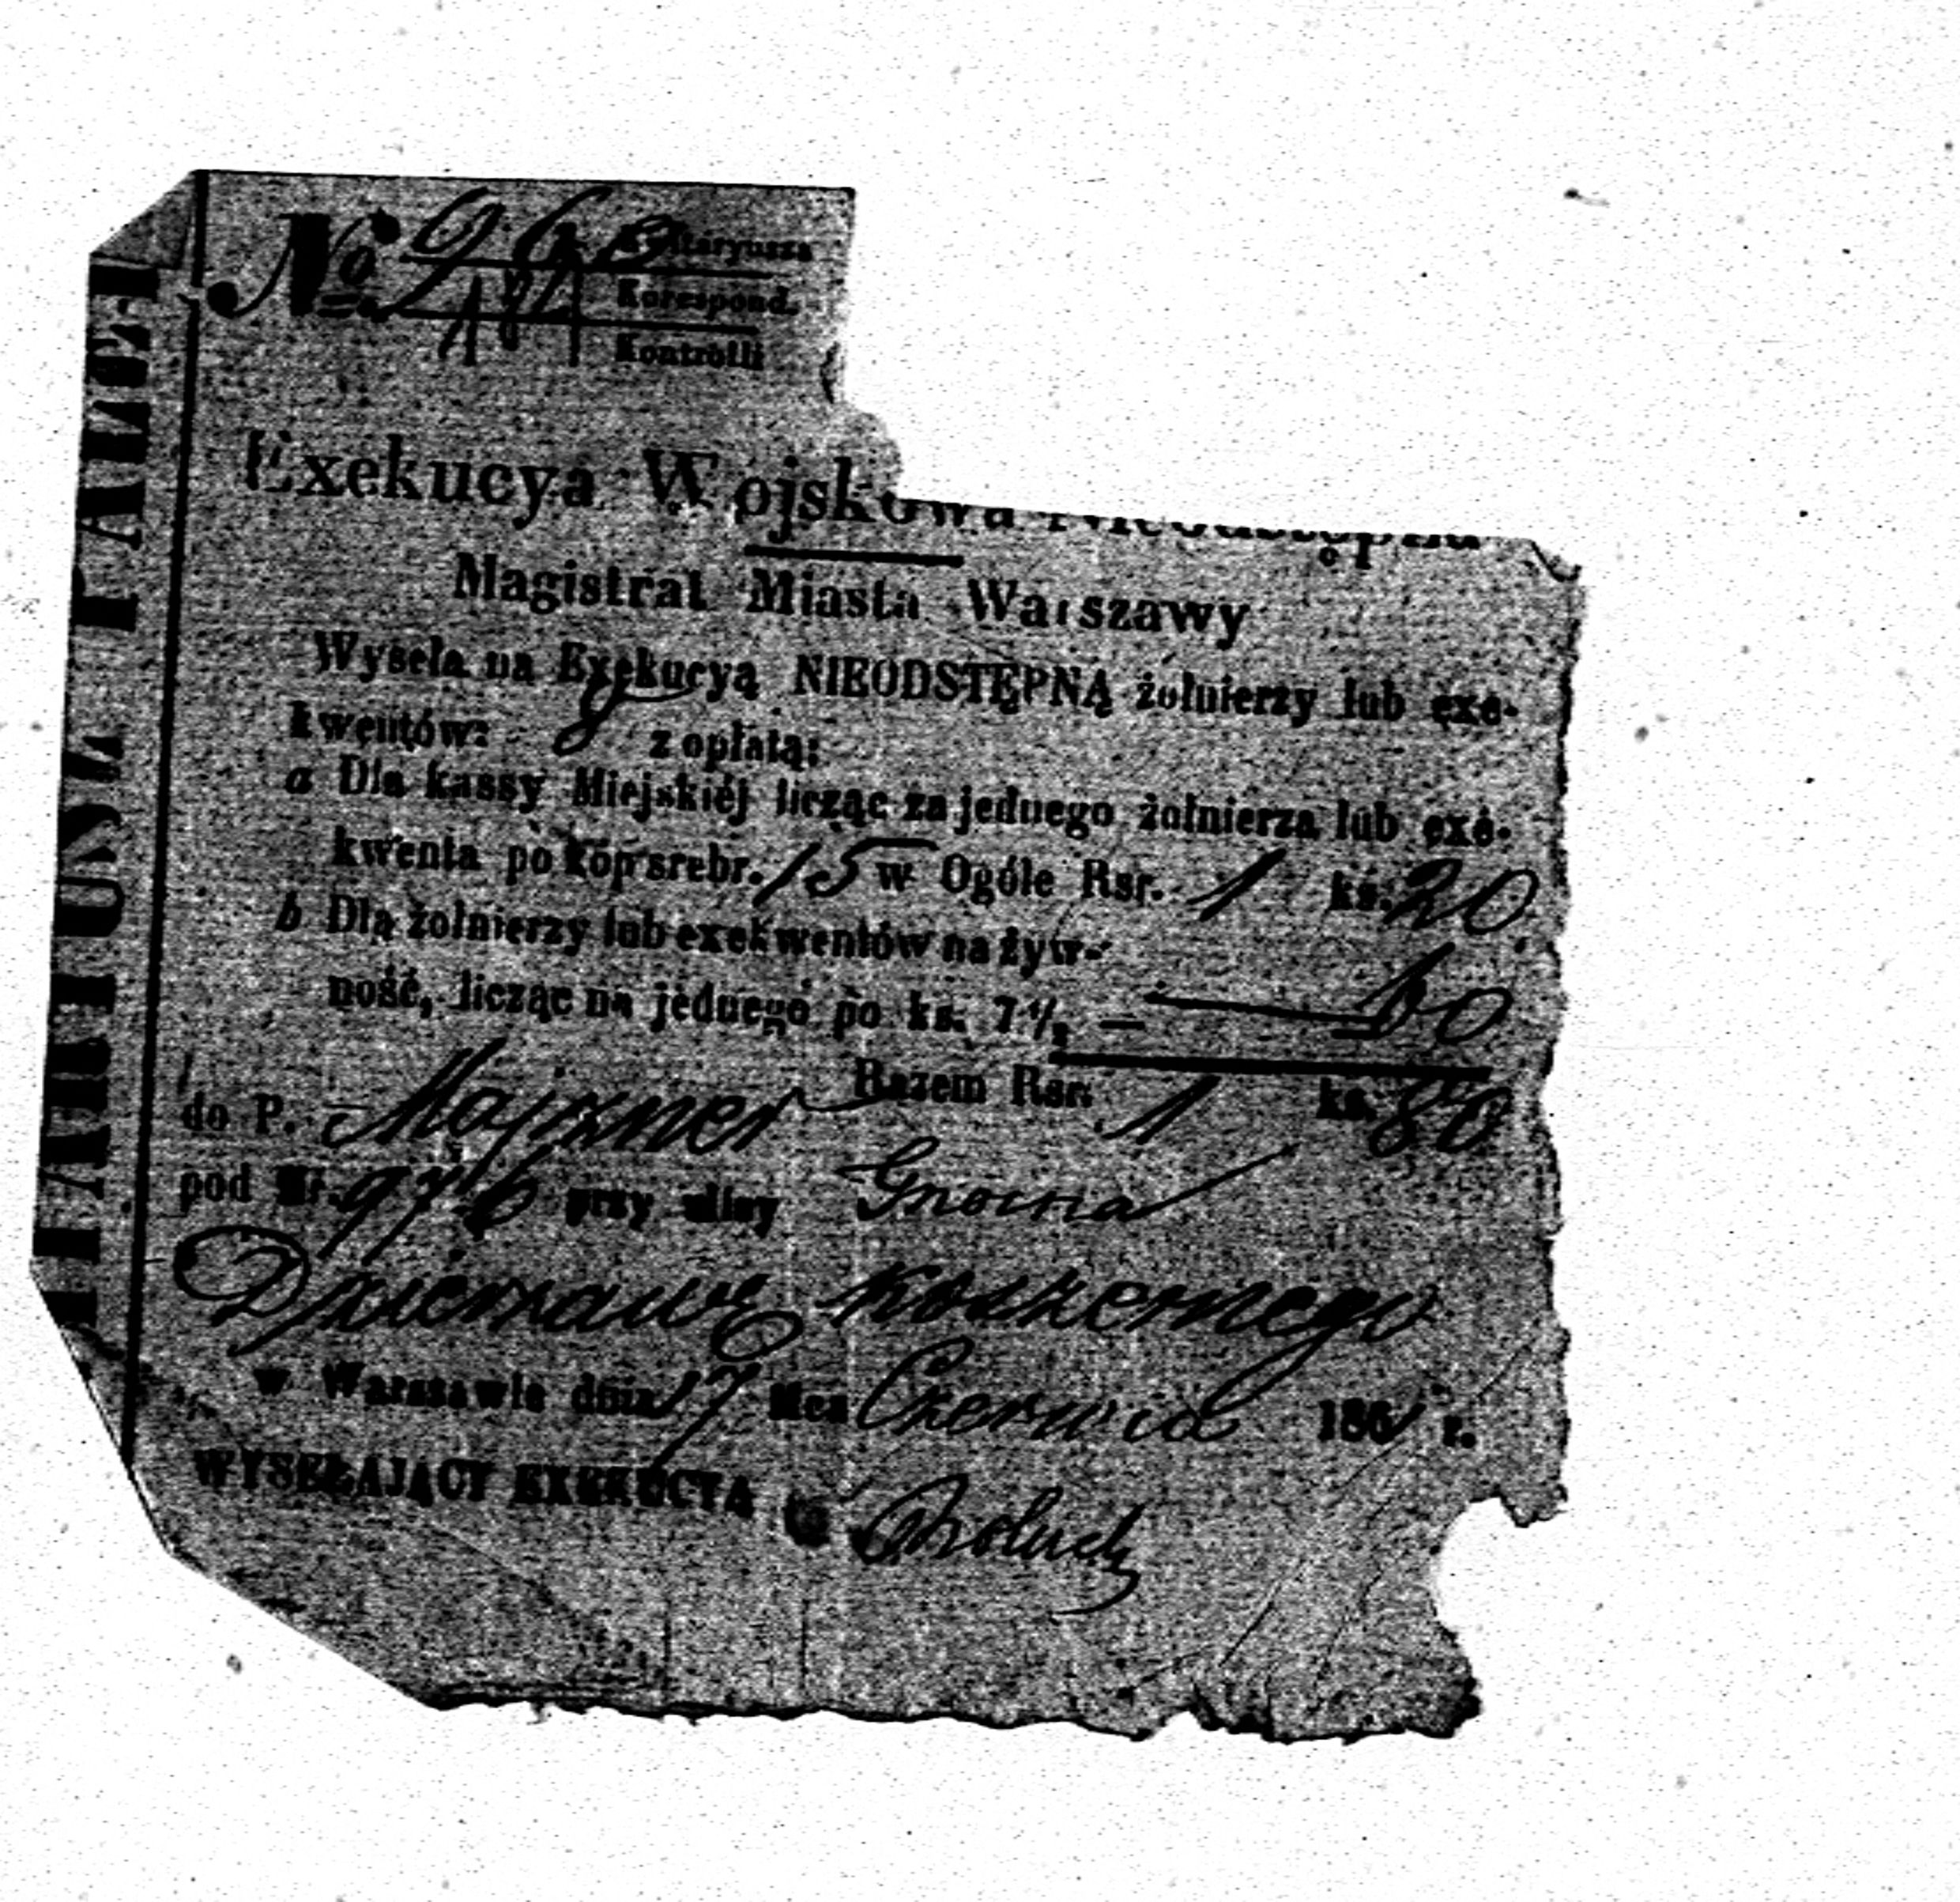 № 963
Korespond.
184 Kontrolli
Exekucya Wojskowa Nieodstępna
Magistrat Miasta Warszawy
Wyseła na Exekucyą NIEODSTĘPNĄ żołnierzy lub exe-
kwentów: 8 z opłatą:
a Dla kassy Miejskiéj licząc za jednego żołnierza lub exe-
kwenta po kop srebr. 15 w Ogóle Rsr. 1 ks. 20
b Dlą żołnierzy lub exekwentów na żyw-
ność, licząc na jednego po ks. 7 1/2 — 60
Razem Rsr. 1 ks. 80
do P. Majzner
pod Nr. 976 przy ulicy Gnoina
Dzierżawę koszernego
w Warszawie dnia 17 Mca Czerwca 1861 r.
WYSEŁAJĄCY EXEKUCYĄ